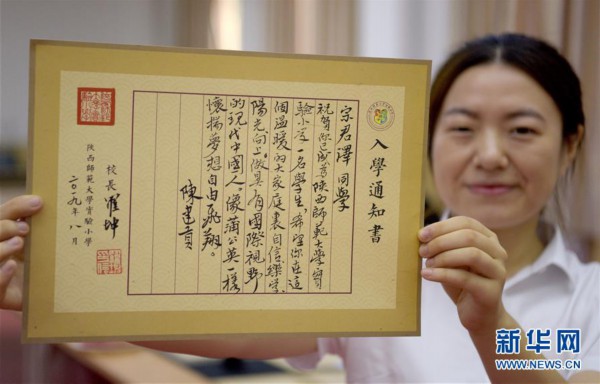 入學通知書
宗君澤同學
祝賀你已成為陝西師範大學實
驗小學一名學生希望你在這
個溫暖的大家庭裏自信樂學、
陽光向上做具有國際視野
的現代中國人。像蒲公英一樣
懷揣夢想自由飛翔。
陳建貢
校長
陝西師範大學實驗小學
二〇一九年八月
新华网
WWW.NEWS.CN